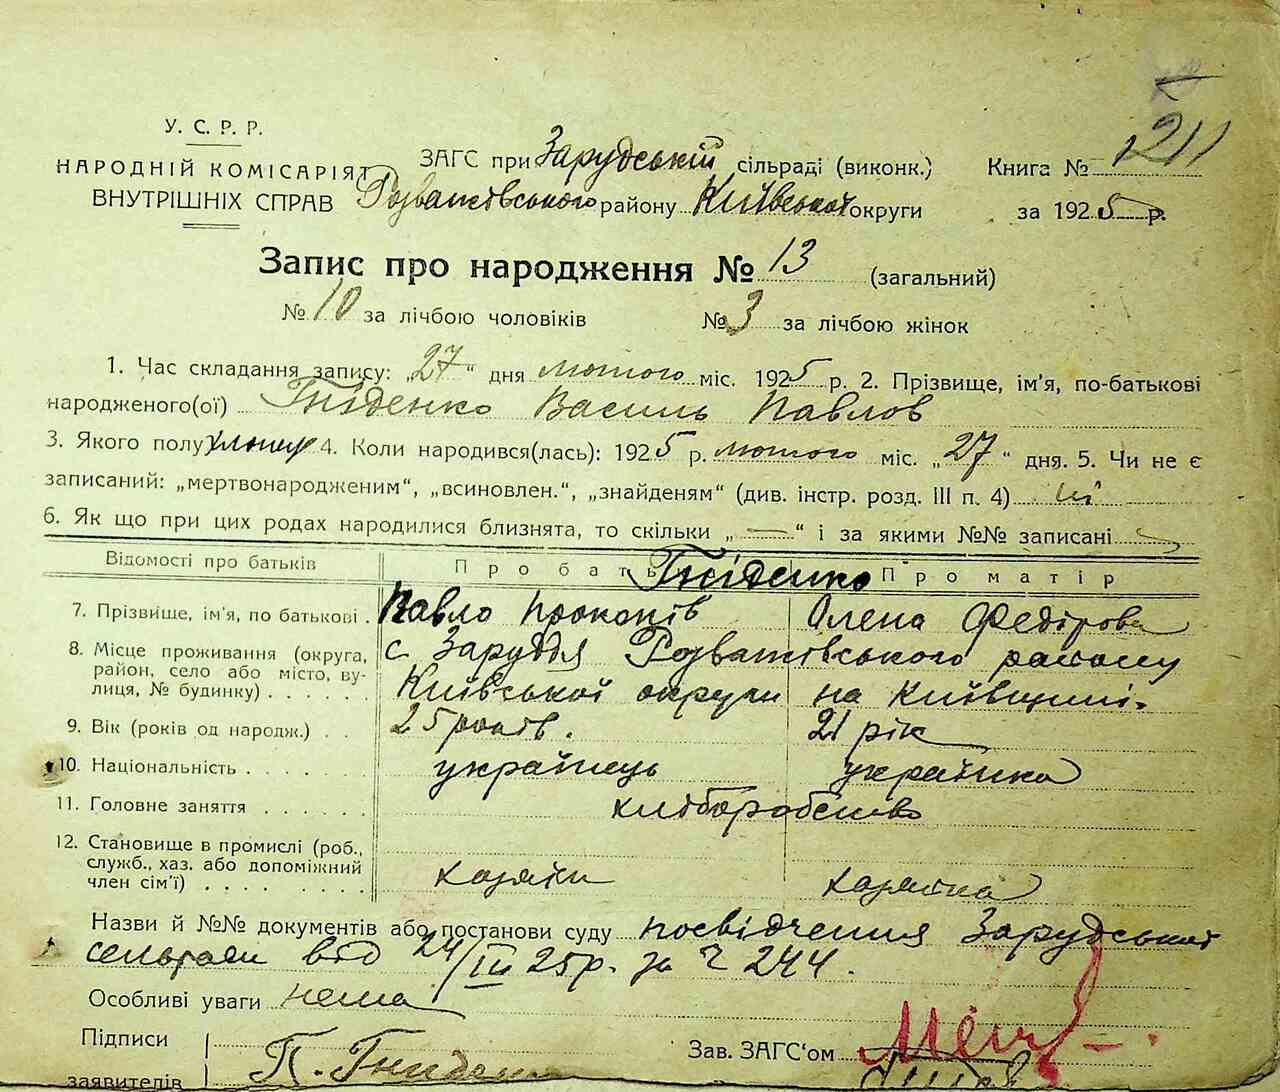 211
У. С. Р. Р.
НАРОДНІЙ КОМІСАРІЯТ
ВНУТРІШНІХ СПРАВ
ЗАГС при Зарудській сільраді (виконк.) Книга №
Розважівського району Київської округи за 1925 р.
Запис про народження № 13 (загальний)
№ 10 за лічбою чоловіків № 3 за лічбою жінок
1. Час складання запису: „27“ дня лютого міс. 1925 р. 2. Прізвище, ім'я, по-батькові
народженого(ої) Гниденко Василь Павлов
3. Якого полу хлопец 4. Коли народився(лась): 1925 р. лютого міс. „27“ дня. 5. Чи не є
записаний: „мертвонародженим“, „всиновлен.“, „знайденям“ (див. інстр. розд. III п. 4) ні
6. Як що при цих родах народилися близнята, то скільки „—“ і за якими №№ записані
Відомості про батьків Про бать Гниденко Про матір
7. Прізвище, ім'я, по батькові . Павло Прокопів Олена Федірова
8. Місце проживання (округа, район, село або місто, вулиця, № будинку) . . . . . с. Заруддя Розважівського району
Київської округи на Київщині.
9. Вік (років од народж.) . . 25 років. 21 рік
10. Національність . . . . . . . українець українка
11. Головне заняття . . . . . хліборобство
12. Становище в промислі (роб.,
служб., хаз. або допоміжний
член сім'ї) . . . . . . . . хазяїн хазяйка
Назви й №№ документів або постанови суду посвідчення Зарудської
сельради від 24/III 25р. за Ч 244.
Особливі уваги нема
Підписи
заявителів П. Гниденко
Зав. ЗАГС'ом